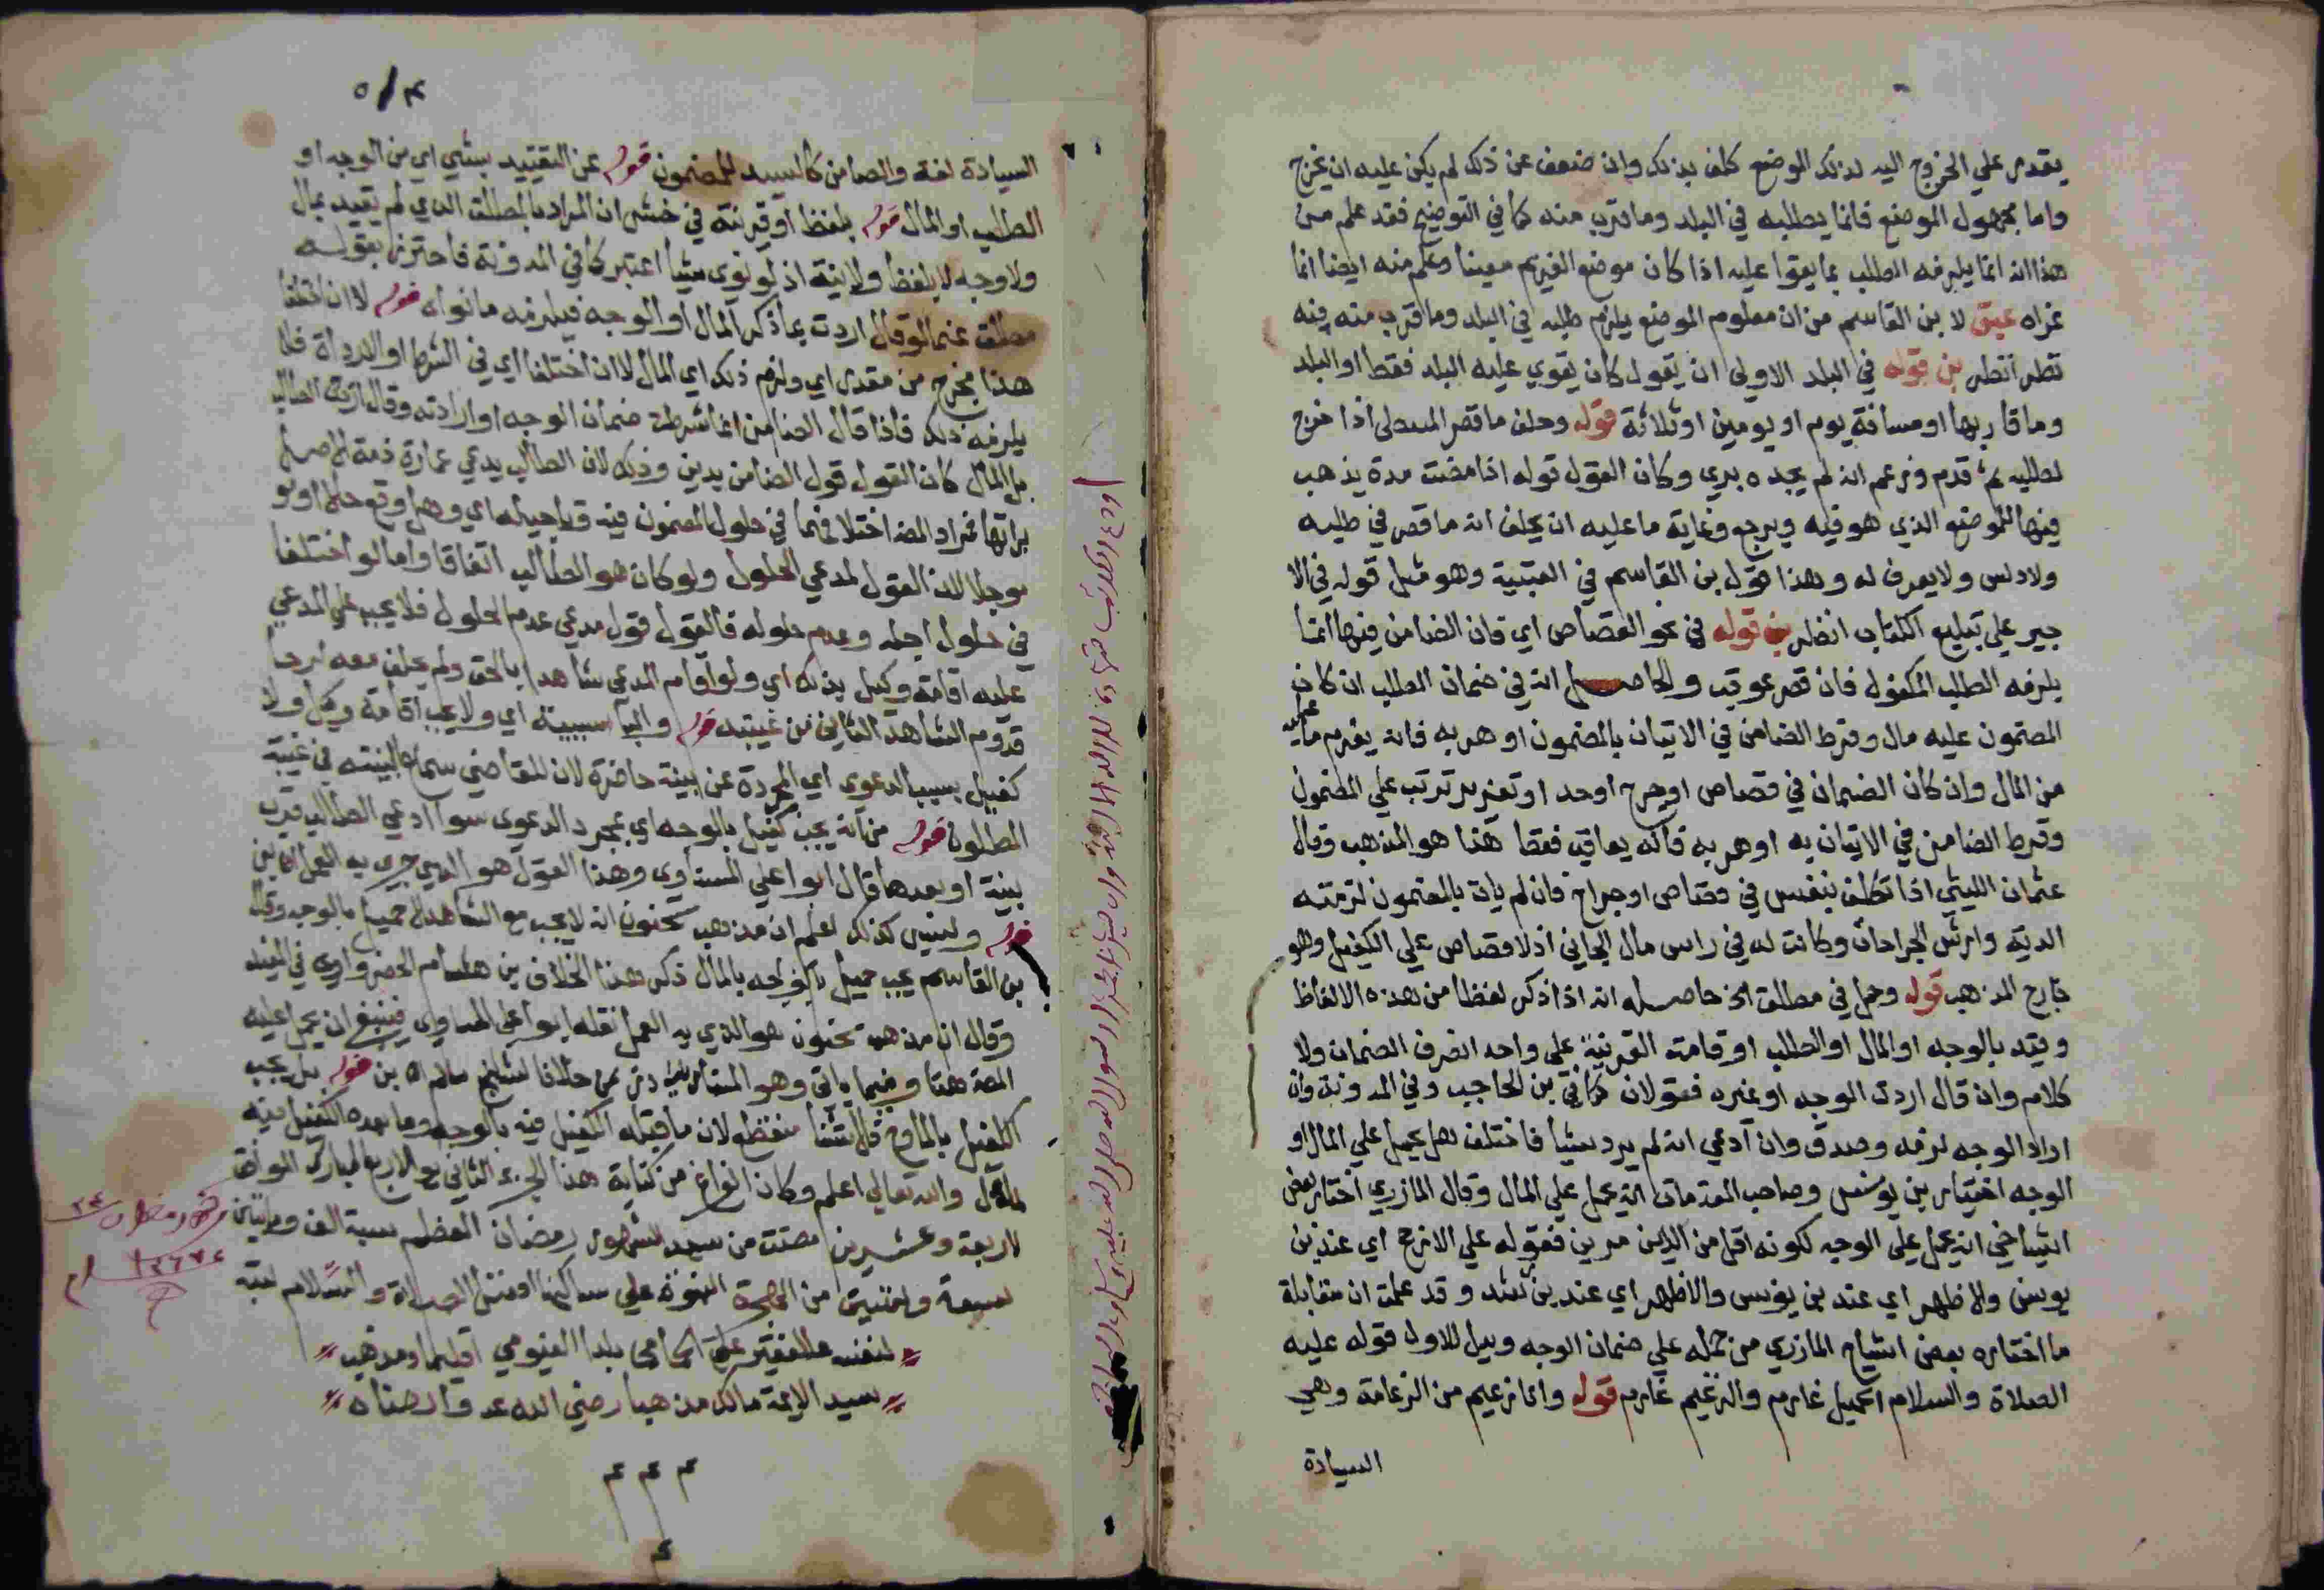 يقدر علي الخروج اليه لذلك الموضع كلف بذلك وان ضعف عن ذلك لم يكن عليه ان يخرج
واما مجهول الموضع فانما يطلبه في البلد وما قرب منه كما في التوضيح فقد علم من
هذا انه انما يلزمه الطلب بما يقوا عليه اذا كان موضع الغريم معينا وعلم منه ايضا انما
عزاه عبق لا بن القاسم من ان معلوم الموضع يلزم طلبه في البلد وما قرب منه فيه
نظر انظر بن قوله في البلد الاولي ان يقول كان يقوي عليه البلد فقط او البلد
وما قاربها او مسافة يوم او يومين او ثلاثة قوله وحلف ما قصر المسطى اذا خرج
لطلبه ثم قدم وزعم انه لم يجده بري وكان القول قوله اذا مضت مدة يذهب
فيها للموضع الذي هو فيه ويرجع وغاية ما عليه ان يحلف انه ما قصر في طلبه
ولا دلس ولا يعرف له وهذا قول بن القاسم في العتبية وهو مثل قوله في الا
جير علي تبليغ الكتاب انظر بن قوله في نحو القصاص اي فان الضامن فيها انما
يلزمه الطلب المكفول فان قصر عوقب والحاصل انه في ضمان الطلب ان كان
المضمون عليه مال وفرط الضامن في الاتيان بالمضمون او هربه فانه يغرم ما عليه
من المال وان كان الضمان في قصاص او جرح او حد او تعزير ترتب علي المضمون
وفرط الضامن في الاتيان به او هربه فانه يعاقب فقط هذا هو المذهب وقال
عثمان الليثي اذا تكلف بنفس في قصاص او جراح فان لم يات بالمضمون لزمته
الدية وارش الجراحات وكانت له في راس مال الجاني اذ لا قصاص علي الكفيل وهو
خارج المذهب قوله وحمل في مطلق الخ حاصله انه اذا ذكر لفظا من هذه الالفاظ
وقيد بالوجه او المال او الطلب او قامت القرنية علي واحد انصرف الضمان ولا
كلام وان قال اردت الوجه او غيره فقولان كما في بن الحاجب وفي المدونة وان
اراد الوجه لزمه وصدق وان ادعي انه لم يرد شيا فاختلف هل يحمل علي المال او
الوجه اختيار بن يونس وصاحب المقدمات انه يحمل علي المال وقال المازري اختار بعض
اشياخي انه يحمل علي الوجه لكونه اقل من الامرين فقوله علي الارجح اي عند بن
يونس والاظهر اي عند بن يونس والاظهر اي عند بن رشد وقد علمت ان مقابلة
ما اختاره بعض اشياخ المازري من حمله علي ضمان الوجه ودليل للاول قوله عليه
الصلاة والسلام الحميل غارم والزعيم غارم قوله وانا زعيم من الزعامة وهي
السيادة
السيادة لغة والضامن كالسيد للمضمون قوله عن التقييد بشي اي من الوجه او
الطلب او المال قوله بلفظ او قرنية في خش ان المراد بالمطلق الذي لم يقيد بمال
ولا وجه لا بلفظ ولا نية اذ لو نوي شيا اعتبر كما في المدونة فاحترز بقوله
مطلق عنما لو قال اردت بما ذكر المال او الوجه فيلزمه ما نواه قوله لا ان اختلفا
هذا مخرج من مقدر اي ولزم ذلك اي المال لا ان اختلفا اي في الشرط او الارادة فلا
يلزمه ذلك فاذا قال الضامن انما شرطت ضمان الوجه او ارادته وقال الطالب
بل المال كان القول قول الضامن بيمين وذلك لان الطالب يدعي عمارة ذمة الاصل
براتها فمراد المصـ اختلافهما في حلول المضمون فيه وتاجيله اي وهل وقع حالا او
موجلا لان القول لمدعي الحلول ولو كان هو الطالب اتفاقا واما لو اختلفا
في حلول اجله وعدم حلوله فالقول قول مدعي عدم الحلول فلا يجب علي المدعي
عليه اقامة وكيل بذلك اي ولو اقام المدعي شاهدا بالحق ولم يحلف معه
قدوم الشاهد الثاني من غيبته قوله والبا سببية اي ولا يجب اقامة وكيل ولا
كفيل بسبب الدعوى اي المجردة عن بينة حاضرة لان للقاضي سماع البينة في غيبة
المطلوب قوله من انه يجب كفيل بالوجه اي بمجرد الدعوي سوا ادعي الطالب قرب
بينة او بعدها قال ابوا علي المسناوي وهذا القول هو الذي جري به العمل
قوله وليس كذلك اعلم ان مذهب سحنون انه لا يجب مع الشاهد حميل بالوجه وقال
بن القاسم يجب حميل بالوجه بالمال ذكر هذا الخلاف بن هشام الخضراوي في المفيد
وقال ان مذهب سحنون هو الذي به العمل نقله ابوا علي المسناوي فينبغي ان يحمل عليه
المصـ هنا وفيما ياتي وهو خلافا للشيخ سالم اه بن قوله بل يجب
الكفيل بالمال
والله تعالي اعلم وكان الفراغ من كتابة هذا الجزء الثاني يوم الاربع المبارك الموافق
لاربعة وعشرين مضت من شهر رمضان المعظم سنة الف ومايتين
سبعة وستين من الهجرة النبوية علي ساكنها افضل الصلاة والسلام كتبه
لنفسه الفقير علي بلدا الفيومي اقليما ومذهب
سيد الايمة مالك مذهبا رضي الله عنه وارضاه
م م م
م